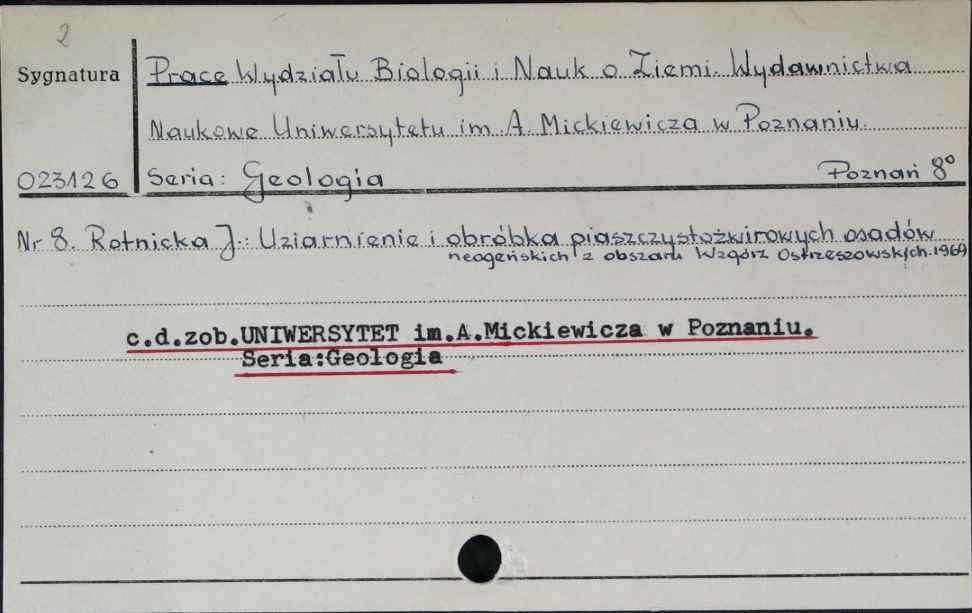 2
Sygnatura
Prace Wydziału Biologii i Nauk o Ziemi. Wydawnictwa
Naukowe Uniwersytetu im A. Mickiewicza w Poznaniu.
023126
Seria: Geologia
Poznań 8°
Nr 8. Rotnicka J.: Uziarnienie i obróbka piaszczystożwirowych osadów
neogeńskich z obszaru Wzgórz Ostrzeszowskich. 1969
c.d.zob.UNIWERSYTET im.A.Mickiewicza w Poznaniu.
Seria:Geologia